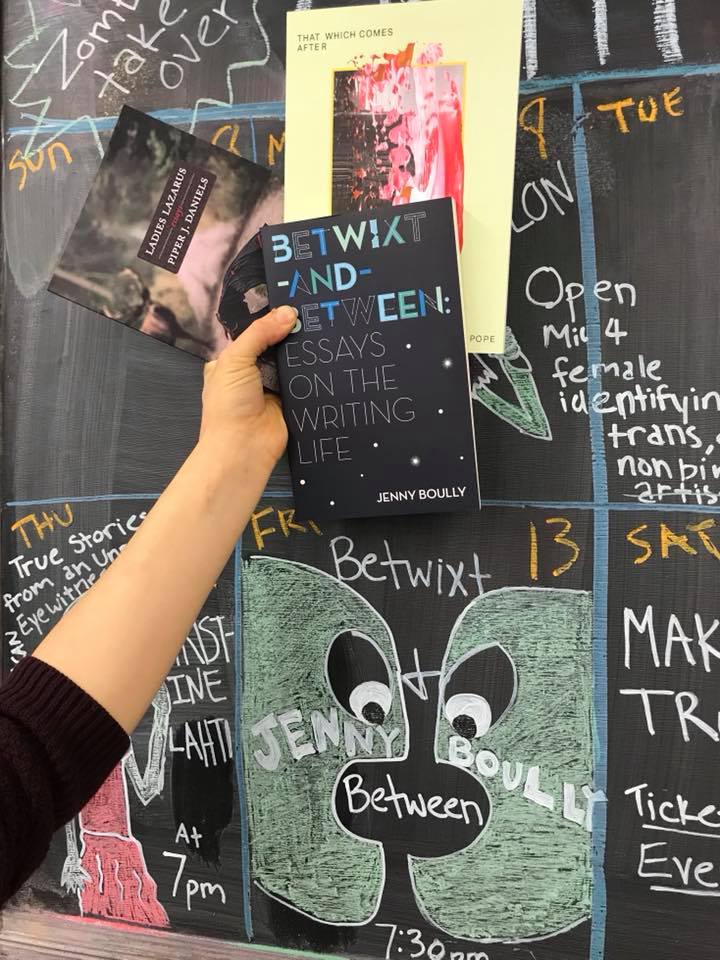 Zombies
take
over
SUN
8
M
9
TUE
THAT WHICH COMES
AFTER
POPE
LADIES LAZARUS
essays
PIPER J. DANIELS
BETWIXT
-AND-
BETWEEN:
ESSAYS
ON THE
WRITING
LIFE
JENNY BOULLY
LON
Open
Mic 4
female
identifyin
trans,
nonbin
artis
THU
True Stories
from an Un
Eyewitne
INST-
INE
LAHTI
At
7pm
FRI
13
Betwixt
+
JENNY
BOULLY
Between
7:30pm
SAT
MAK
TR
Ticke
Eve